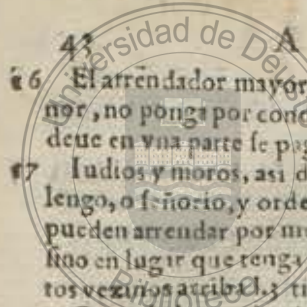 43 A
sidad de Deu
66 El arrendador mayor
nor, no ponga por cond
deue en vna parte se pag
67 Iudios y moros, asi d
lengo, o señorio, y orde
pueden arrendar por m
sino en lugar que tenga
tos vezinos